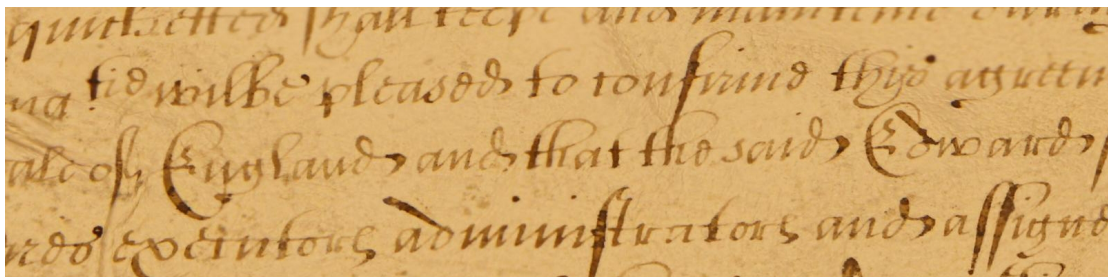 quicksetted shall keepe and mainteine
tie wilbe pleased to confirme thys agreem
ale of England and that the said Edward
executors administrators and assigne